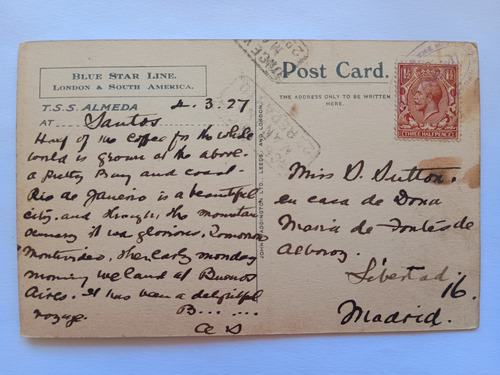 BLUE STAR LINE.
LONDON & SOUTH AMERICA.
T.S.S. ALMEDA
4.3.27
AT Santos
Half of the coffee for the whole
world is grown at the above.
a Pretty Bay and coast.
Rio de Janeiro is a beautiful
city. and the mountain
it was glorious. Tomorrow
Montevideo, then early monday
morning we land at Buenos
Aires. It has been a delightful
voyage.
B... ....
a S
JOHN WADDINGTON LTD. LEEDS AND LONDON
Post Card.
THE ADDRESS ONLY TO BE WRITTEN
HERE.
1½
1½
THREE HALFPENCE
Miss D. Sutton.
en casa de Dona
Maria de Fontes de
Libertad.
16.
Madrid.